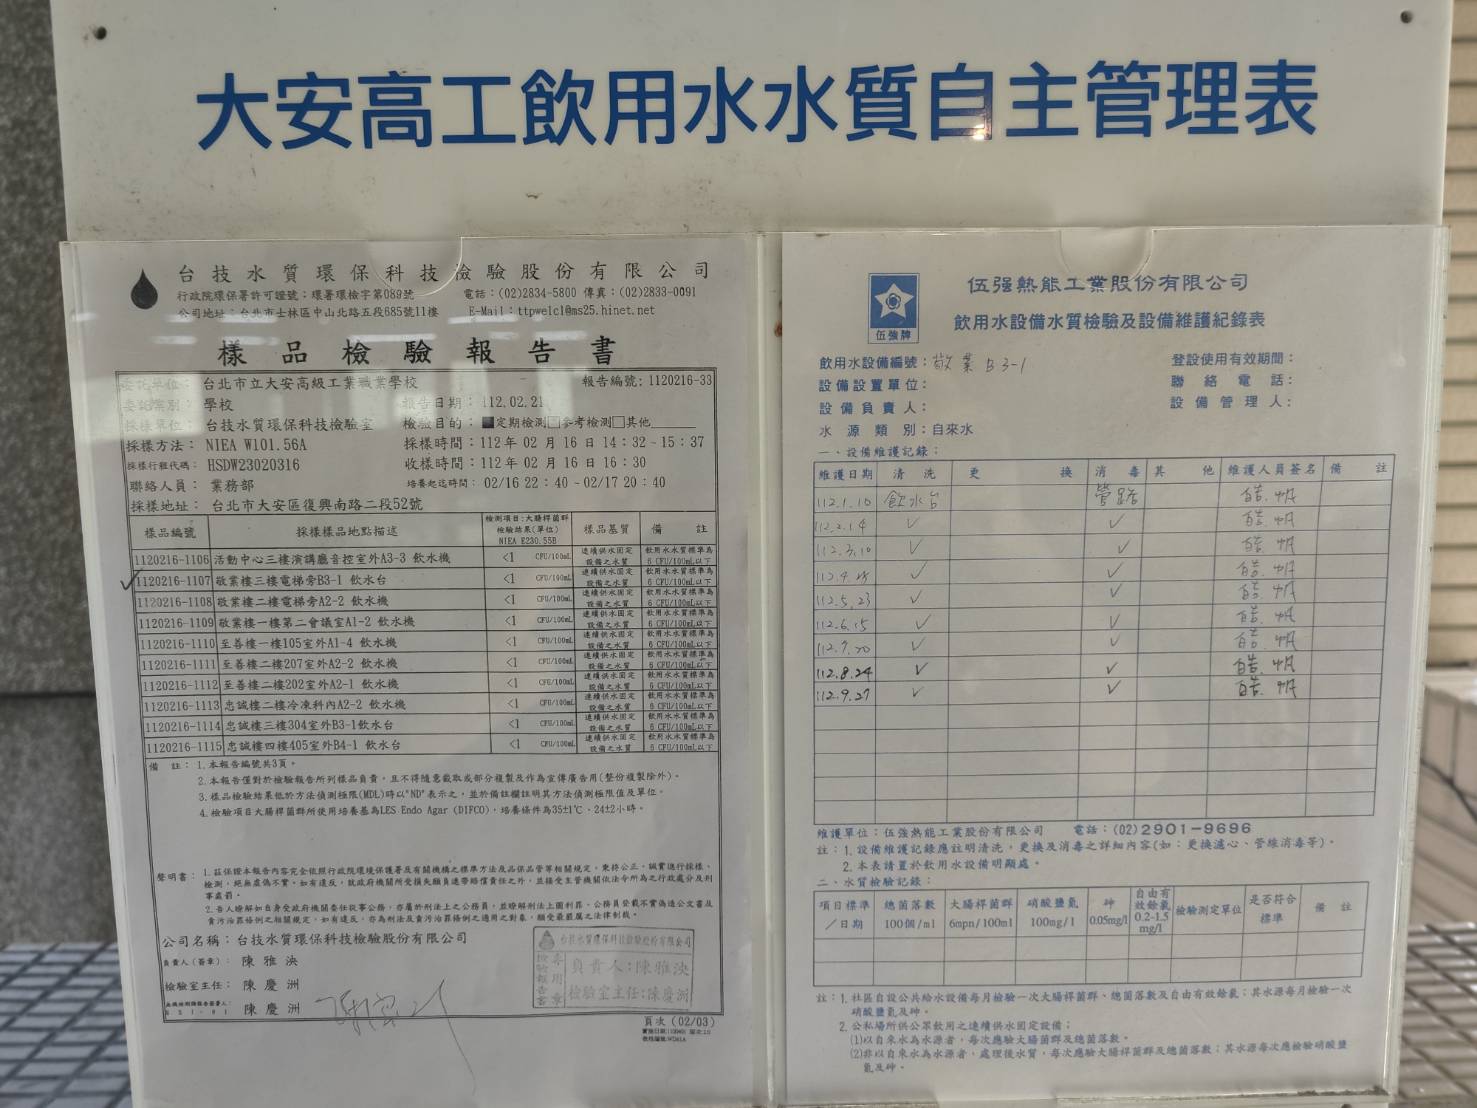 大安高工飲用水水質自主管理表
台技水質環保科技檢驗股份有限公司
行政院環保署許可證號：環署環檢字第089號 電話：(02)2834-5800 傳真：(02)2833-0091
公司地址：台北市士林區中山北路五段685號11樓 E-Mail：ttpwelcl@ms25.hinet.net
樣品檢驗報告書
委託單位：台北市立大安高級工業職業學校 報告編號：1120216-33
委託類別：學校 報告日期：112.02.21
採樣單位：台技水質環保科技檢驗室 檢驗目的：■定期檢測□參考檢測□其他
採樣方法：NIEA W101.56A 採樣時間：112年02月16日14：32~15：37
採樣行程代碼：HSDW23020316 收樣時間：112年02月16日16：30
聯絡人員：業務部 培養起迄時間：02/16 22：40~02/17 20：40
採樣地址：台北市大安區復興南路二段52號
樣品編號 採樣樣品地點描述 檢測項目:大腸桿菌群 檢驗結果(單位) NIEA E230.55B 樣品基質 備註
1120216-1106 活動中心三樓演講廳音控室外A3-3 飲水機 <1 CFU/100mL 連續供水固定設備之水質 飲用水水質標準為6 CFU/100mL以下
✓1120216-1107 敬業樓三樓電梯旁B3-1 飲水台 <1 CFU/100mL 連續供水固定設備之水質 飲用水水質標準為6 CFU/100mL以下
1120216-1108 敬業樓二樓電梯旁A2-2 飲水機 <1 CFU/100mL 連續供水固定設備之水質 飲用水水質標準為6 CFU/100mL以下
1120216-1109 敬業樓一樓第二會議室A1-2 飲水機 <1 CFU/100mL 連續供水固定設備之水質 飲用水水質標準為6 CFU/100mL以下
1120216-1110 至善樓一樓105室外A1-4 飲水機 <1 CFU/100mL 連續供水固定設備之水質 飲用水水質標準為6 CFU/100mL以下
1120216-1111 至善樓二樓207室外A2-2 飲水機 <1 CFU/100mL 連續供水固定設備之水質 飲用水水質標準為6 CFU/100mL以下
1120216-1112 至善樓二樓202室外A2-1 飲水機 <1 CFU/100mL 連續供水固定設備之水質 飲用水水質標準為6 CFU/100mL以下
1120216-1113 忠誠樓二樓冷凍科內A2-2 飲水機 <1 CFU/100mL 連續供水固定設備之水質 飲用水水質標準為6 CFU/100mL以下
1120216-1114 忠誠樓三樓304室外B3-1飲水台 <1 CFU/100mL 連續供水固定設備之水質 飲用水水質標準為6 CFU/100mL以下
1120216-1115 忠誠樓四樓405室外B4-1 飲水台 <1 CFU/100mL 連續供水固定設備之水質 飲用水水質標準為6 CFU/100mL以下
備註：1.本報告編號共3頁。
2.本報告僅對於檢驗報告所列樣品負責，且不得隨意截取或部分複製及作為宣傳廣告用(整份複製除外)。
3.樣品檢驗結果低於方法偵測極限(MDL)時以"ND"表示之，並於備註欄註明其方法偵測極限值及單位。
4.檢驗項目大腸桿菌群所使用培養基為LES Endo Agar (DIFCO)，培養條件為35±1℃，24±2小時。
聲明書：1.茲保證本報告內容完全依照行政院環境保護署及有關機構之標準方法及品保品管等相關規定，秉持公正、誠實進行採樣、
檢測，絕無虛偽不實，如有違反，就政府機關所受損失願負連帶賠償責任之外，並接受主管機關依法令所為之行政處分及刑
事處罰。
2.吾人瞭解如自身受政府機關委任從事公務，亦屬於刑法上之公務員，並瞭解刑法上圖利罪、公務員登載不實偽造公文書及
貪污治罪條例之相關規定，如有違反，亦為刑法及貪污治罪條例之適用之對象，願受最嚴厲之法律制裁。
公司名稱：台技水質環保科技檢驗股份有限公司
負責人(簽章)：陳雅泱
檢驗室主任：陳慶洲
陳慶洲
台技水質環保科技檢驗股份有限公司
檢驗報告書專用章
負責人:陳雅泱
檢驗室主任:陳慶洲
頁次(02/03)
伍強牌
伍強熱能工業股份有限公司
飲用水設備水質檢驗及設備維護紀錄表
飲用水設備編號：敬業B3-1 登設使用有效期間：
設備設置單位： 聯絡電話：
設備負責人： 設備管理人：
水源類別：自來水
一、設備維護記錄：
維護日期 清洗 更換 消毒 其他 維護人員簽名 備註
112.1.10 飲水台 管路 皓.帆
112.2.14 ✓ ✓ 皓.帆
112.3.10 ✓ ✓ 皓.帆
✓ ✓ 皓.帆
112.5.23 ✓ ✓ 皓.帆
112.6.15 ✓ ✓ 皓.帆
112.7.20 ✓ ✓ 皓.帆
112.8.24 ✓ ✓ 皓.帆
112.9.27 ✓ ✓ 皓.帆
維護單位：伍強熱能工業股份有限公司 電話：(02)2901-9696
註：1.設備維護記錄應註明清洗，更換及消毒之詳細內容(如：更換濾心、管線消毒等)。
2.本表請置於飲用水設備明顯處。
二、水質檢驗記錄：
項目標準／日期 總菌落數 100個/ml 大腸桿菌群 6mpn/100ml 硝酸鹽氮 100mg/l 砷 0.05mg/l 自由有效餘氯 0.2-1.5 mg/l 檢驗測定單位 是否符合標準 備註
註：1.社區自設公共給水設備每月檢驗一次大腸桿菌群、總菌落數及自由有效餘氯；其水源每月檢驗一次
硝酸鹽氮及砷。
2.公私場所供公眾飲用之連續供水固定設備：
(1)以自來水為水源者，每次應驗大腸菌群及總菌落數。
(2)非以自來水為水源者，處理後水質，每次應驗大腸桿菌群及總菌落數；其水源每次應檢驗硝酸鹽
氮及砷。